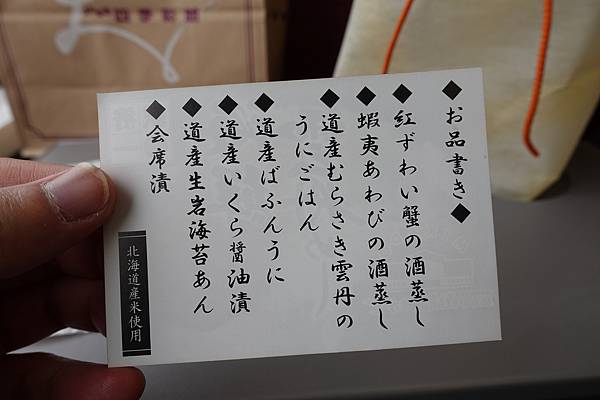 ◆お品書き◆
◆紅ずわい蟹の酒蒸し
◆蝦夷あわびの酒蒸し
◆道産むらさき雲丹の
うにごはん
◆道産ばふんうに
◆道産いくら醤油漬
◆道産生岩海苔あん
◆会席漬
北海道産米使用